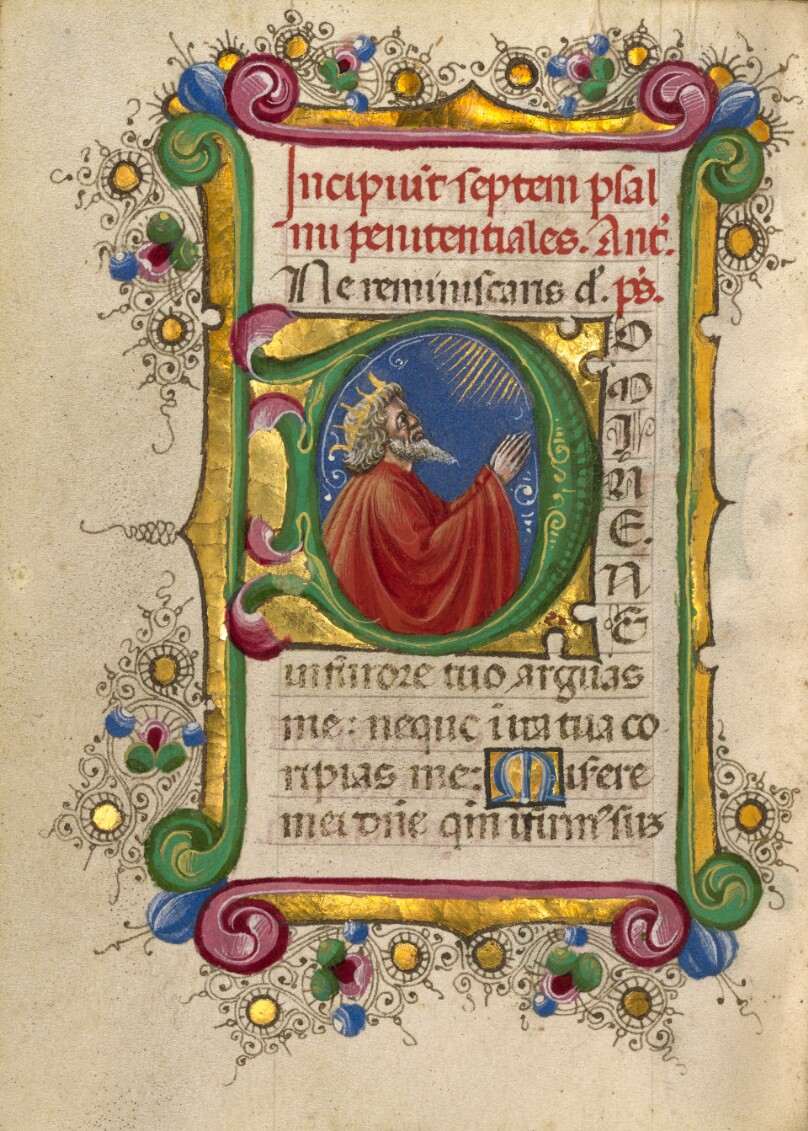 Incipiu͞t septem psal
mi penitentiales. Ant͛.
Ne reminiscaris d͛. p͞s.
D
O
M
I
N
E.
N
E
in furore tuo arguas
me: neque i ira tua co
ripias me: Misere
mei dn͞e qm͞ ifirm᷒ sus